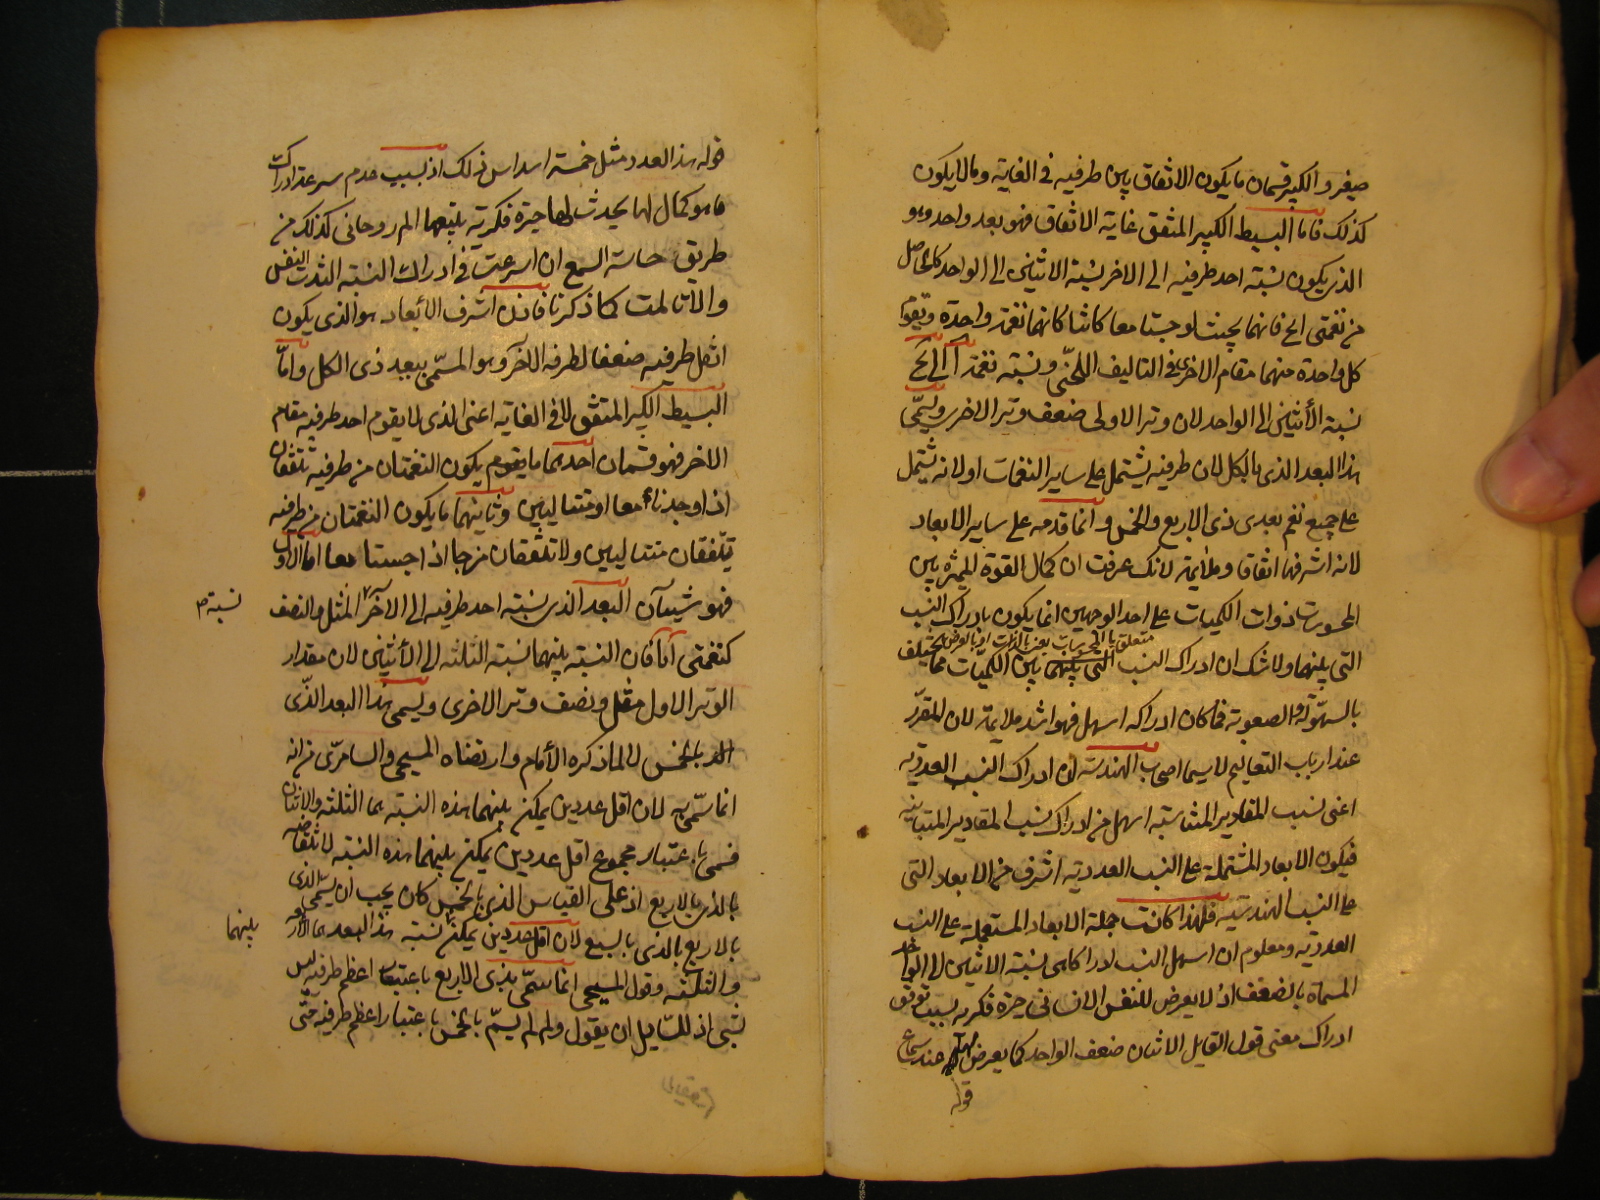 صغير والكبير قسمان ما يكون الاتفاق بين طرفيه فى الغاية وما لا يكون
كذلك فاما البسيط الكبير المتفق غاية الاتفاق فهو بعد واحد وهو
الذى يكون نسبة احد طرفيه الى الاخر نسبة الاثنين الى الواحد كالحاصل
من نغمتى ا يح فانهما بحيث لو جستا معا كانتا كانهما نغمة واحدة ويقوم
كل واحدة منهما مقام الاخرى فى التاليف اللحنى ونسبة نغمة ا الى يح
نسبة الأثنين الى الواحد لان وتر الاولى ضعف وتر الاخرى ويسمّى
هذا البعد الذى بالكل لان طرفيه يشتمل على ساير النغمات او لانه يشتمل
على جميع نغم بعدى ذى الاربع والخمس وانما قدمه على ساير الابعاد
لانه اشرفها اتفاقا وملايمة لانك عرفت ان كمال القوة المميزة بين
المحسوسات ذوات الكميات على احد الوجهين انما يكون بادراك النسب
متعلق بالمحسوسات يعنى بالذات او بالعرض
التى بينهما ولا شك ان ادراك النسب التى بينهما بين الكميّات مما يختلف
بالسهولة والصعوبة فما كان ادراكه اسهل فهو اشد ملايمة لان المقرّر
عند ارباب التعاليم لا سيما اصحاب الهندسة ان ادراك النسب العددية
اعنى نسب المقادير المتناسبة اسهل من ادراك نسب المقادير المتباينة
فيكون الابعاد المشتملة على النسب العددية اشرف من الابعاد التى
على النسب الهندسية فلهذا كانت جملة الابعاد المستعملة على النسب
العددية ومعلوم ان اسهل النسب ادراكا هى نسبة الاثنين الى الواحد
المسماة بالضعف اذ لا يعرض للنفس الانسانى حيرة فكرية بسبب توقف
ادراك معنى قول القايل الاثنان ضعف الواحد كما يعرض لها عند سماع
قوله
قوله هذا العدد مثل خمسة اسداس ذلك اذ بسبب عدم سرعة ادراك
ما هو كمال لها يحدث لها حيرة فكرية يتبعها الم روحانى كذلك من
طريق حاسة السمع ان اسرعت فى ادراك النسبة التذت النفس
والا تالمت كما ذكرنا فاذن اشرف الأبعاد هو الذى يكون
اثقل طرفيه ضعفا لطرفه الآخر وهو المسمّى ببعد ذى الكل وامّا
البسيط الكبير المتفق لا فى الغاية اعنى الذى لا يقوم احد طرفيه مقام
الاخر فهو قسمان احدهما ما يقوم يكون النغمتان من طرفيه تتفقان
اذا وجدنا معا او متتاليين وثانيهما ما يكون النغمتان من طرفيه
تتفقان متتاليين ولا تتفقان مزجا اذا جستا معا اما الاول
فهو شيئان البعد الذى نسبة احد طرفيه الى الاخر المثل والنصف
نسبة
كنغمتى ا يا فان النسبة بينهما نسبة الثلثة الى الأثنين لان مقدار
الوتر الاول مثل ونصف وتر الاخرى ويسمى هذا البعد الذى
بالخمس لا لما ذكره الأمام وارتضاه المسيحى والسامرّى من انه
انما سمّى به لان اقل عددين يمكن بينهما هذه النسبة هما الثلثة والاثنان
فسمى باعتبار مجموع اقل عددين يمكن بينهما هذه النسبة لانتقاضه
بالذى بالاربع اذ على القياس الذى بالخمس كان يجب ان يسمى الذى
بالاربع بالذى بالسبع لان اقل عددين يمكن نسبة هذا البعد هما الاربعة
بينهما
والثلثة وقول المسيحى انما سمّى بذى الاربع باعتبار اعظم طرفيه ليس
بشى اذ للسّايل ان يقول ولم لم يسمّ بالخمس باعتبار اعظم طرفيه حتّى